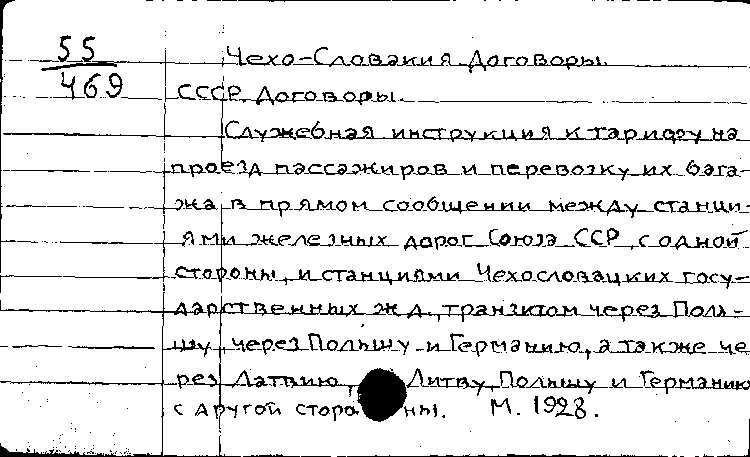 55
469
Чехо-Словакия. Договоры.
СССР. Договоры.
Служебная инструкция к тарифу на
проезд пассажиров и перевозку их бага-
жа в прямом сообщении между станци-
ями железных дорог Союза ССР, с одной
стороны, и станциями Чехословацких госу-
дарственных ж.д., транзитом через Поль-
шу, через Польшу и Германию, а также че
рез Латвию, Литву, Польшу и Германию
с другой стороны. М. 1928.